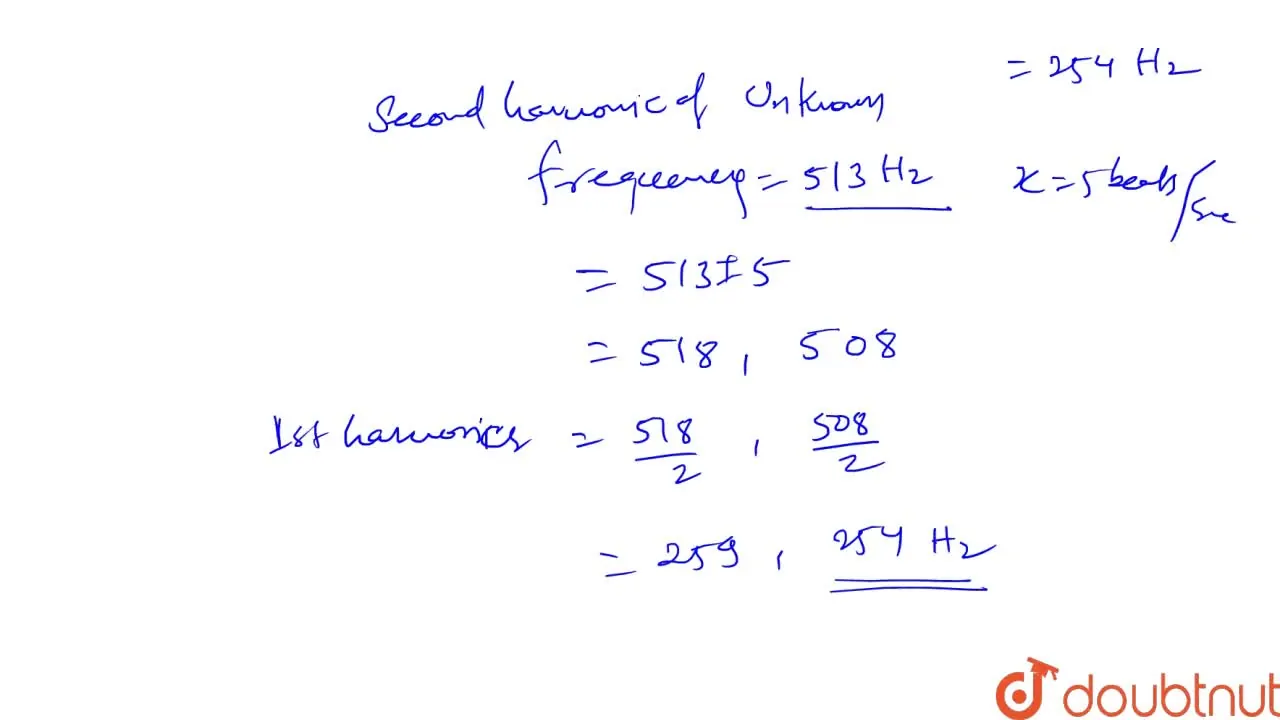 = 254 Hz
Second harmonic of Unknown
frequency = 513 Hz
x = 5 beats/sec
= 513 ± 5
= 518 , 508
1st harmonics = 518/2 , 508/2
= 259 , 254 Hz
doubtnut